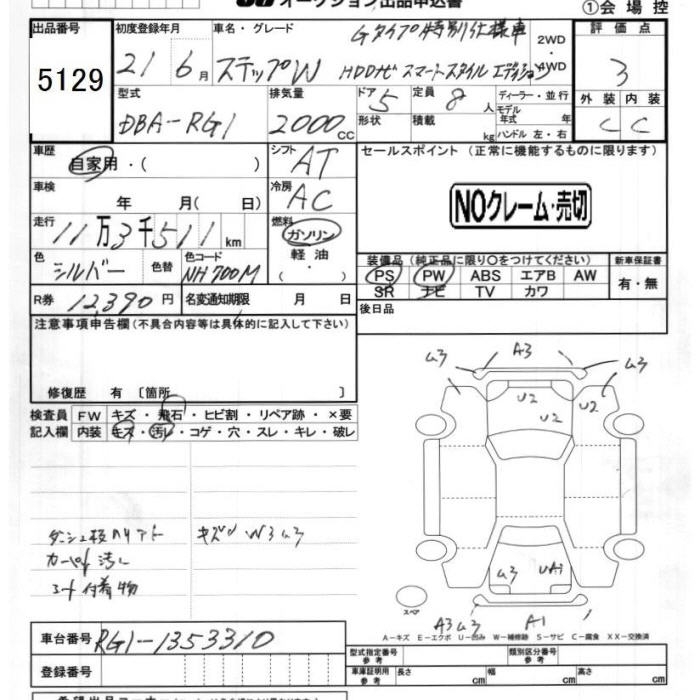 オークション出品申込書
①会場控
出品番号 5129
初度登録年月 21 6月
車名・グレード Gタイプ特別仕様車
ステップW HDDナビ スマートスタイル エディション
2WD・4WD
評価点 3
外装 C 内装 C
型式 DBA-RG1
排気量 2000cc
ドア 5 形状
定員 8人 積載 kg
ディーラー・並行
モデル年式 年式
ハンドル 左・右
車歴 自家用・( )
シフト AT
セールスポイント(正常に機能するものに限ります)
車検 年 月( 日)
冷房 AC
NOクレーム・売切
走行 11万3千511km
燃料 ガソリン 軽油
色 シルバー 色替
色コード NH700M
装備品(純正品に限り○をつけてください)
新車保証書
PS PW ABS エアB AW
SR ナビ TV カワ
有・無
R券 12,390円
名変通知期限 月 日
後日品
注意事項申告欄(不具合内容等は具体的に記入して下さい)
修復歴 有〔箇所 〕
検査員 FW キズ・飛石・ヒビ割・リペア跡・×要
記入欄 内装 キズ・汚レ・コゲ・穴・スレ・キレ・破レ
U3 A3 U3
U2 U2 U2
キズ W3 U3
カーペット汚レ
シート付着物
U3 UA1
スペア
A3 U3 A1
A-キズ E-エクボ U-凹み W-補修跡 S-サビ C-腐食 XX-交換済
車台番号 RG1-1353310
登録番号
型式指定番号 参考
類別区分番号 参考
車庫証明用 参考 長さ cm 幅 cm 高さ cm